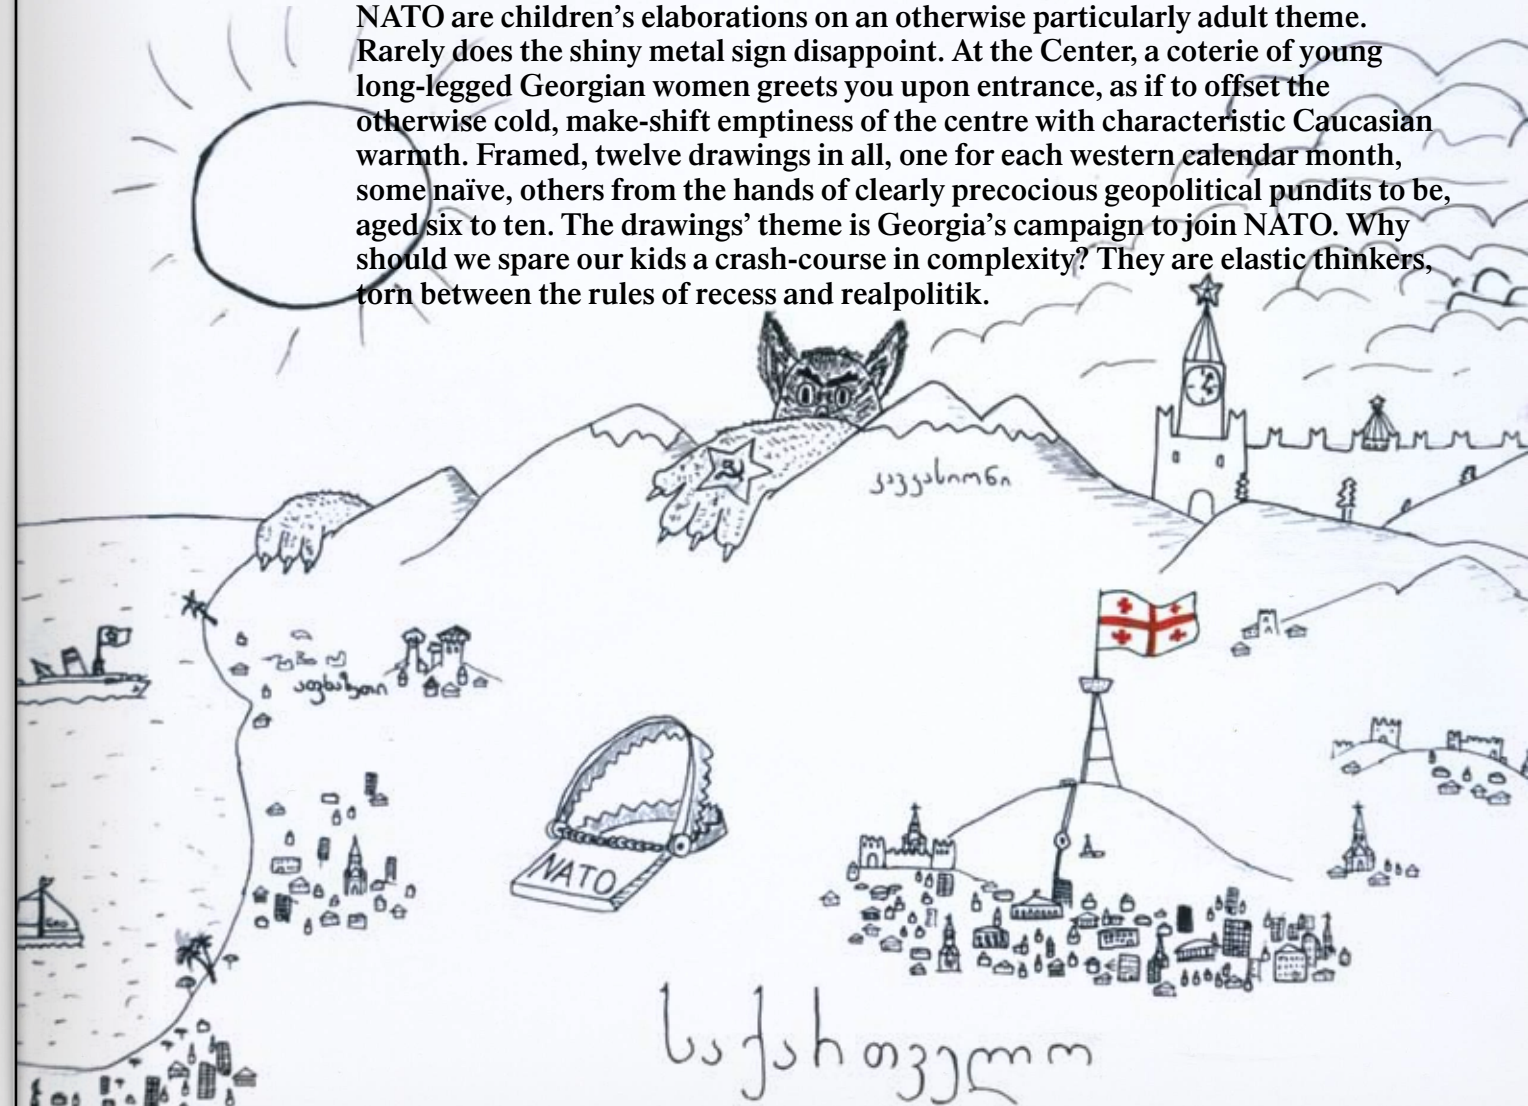 NATO are children’s elaborations on an otherwise particularly adult theme.
Rarely does the shiny metal sign disappoint. At the Center, a coterie of young
long-legged Georgian women greets you upon entrance, as if to offset the
otherwise cold, make-shift emptiness of the centre with characteristic Caucasian
warmth. Framed, twelve drawings in all, one for each western calendar month,
some naïve, others from the hands of clearly precocious geopolitical pundits to be,
aged six to ten. The drawings’ theme is Georgia’s campaign to join NATO. Why
should we spare our kids a crash-course in complexity? They are elastic thinkers,
torn between the rules of recess and realpolitik.
კავკასიონი
აფხაზეთი
NATO
GEO
საქართველო